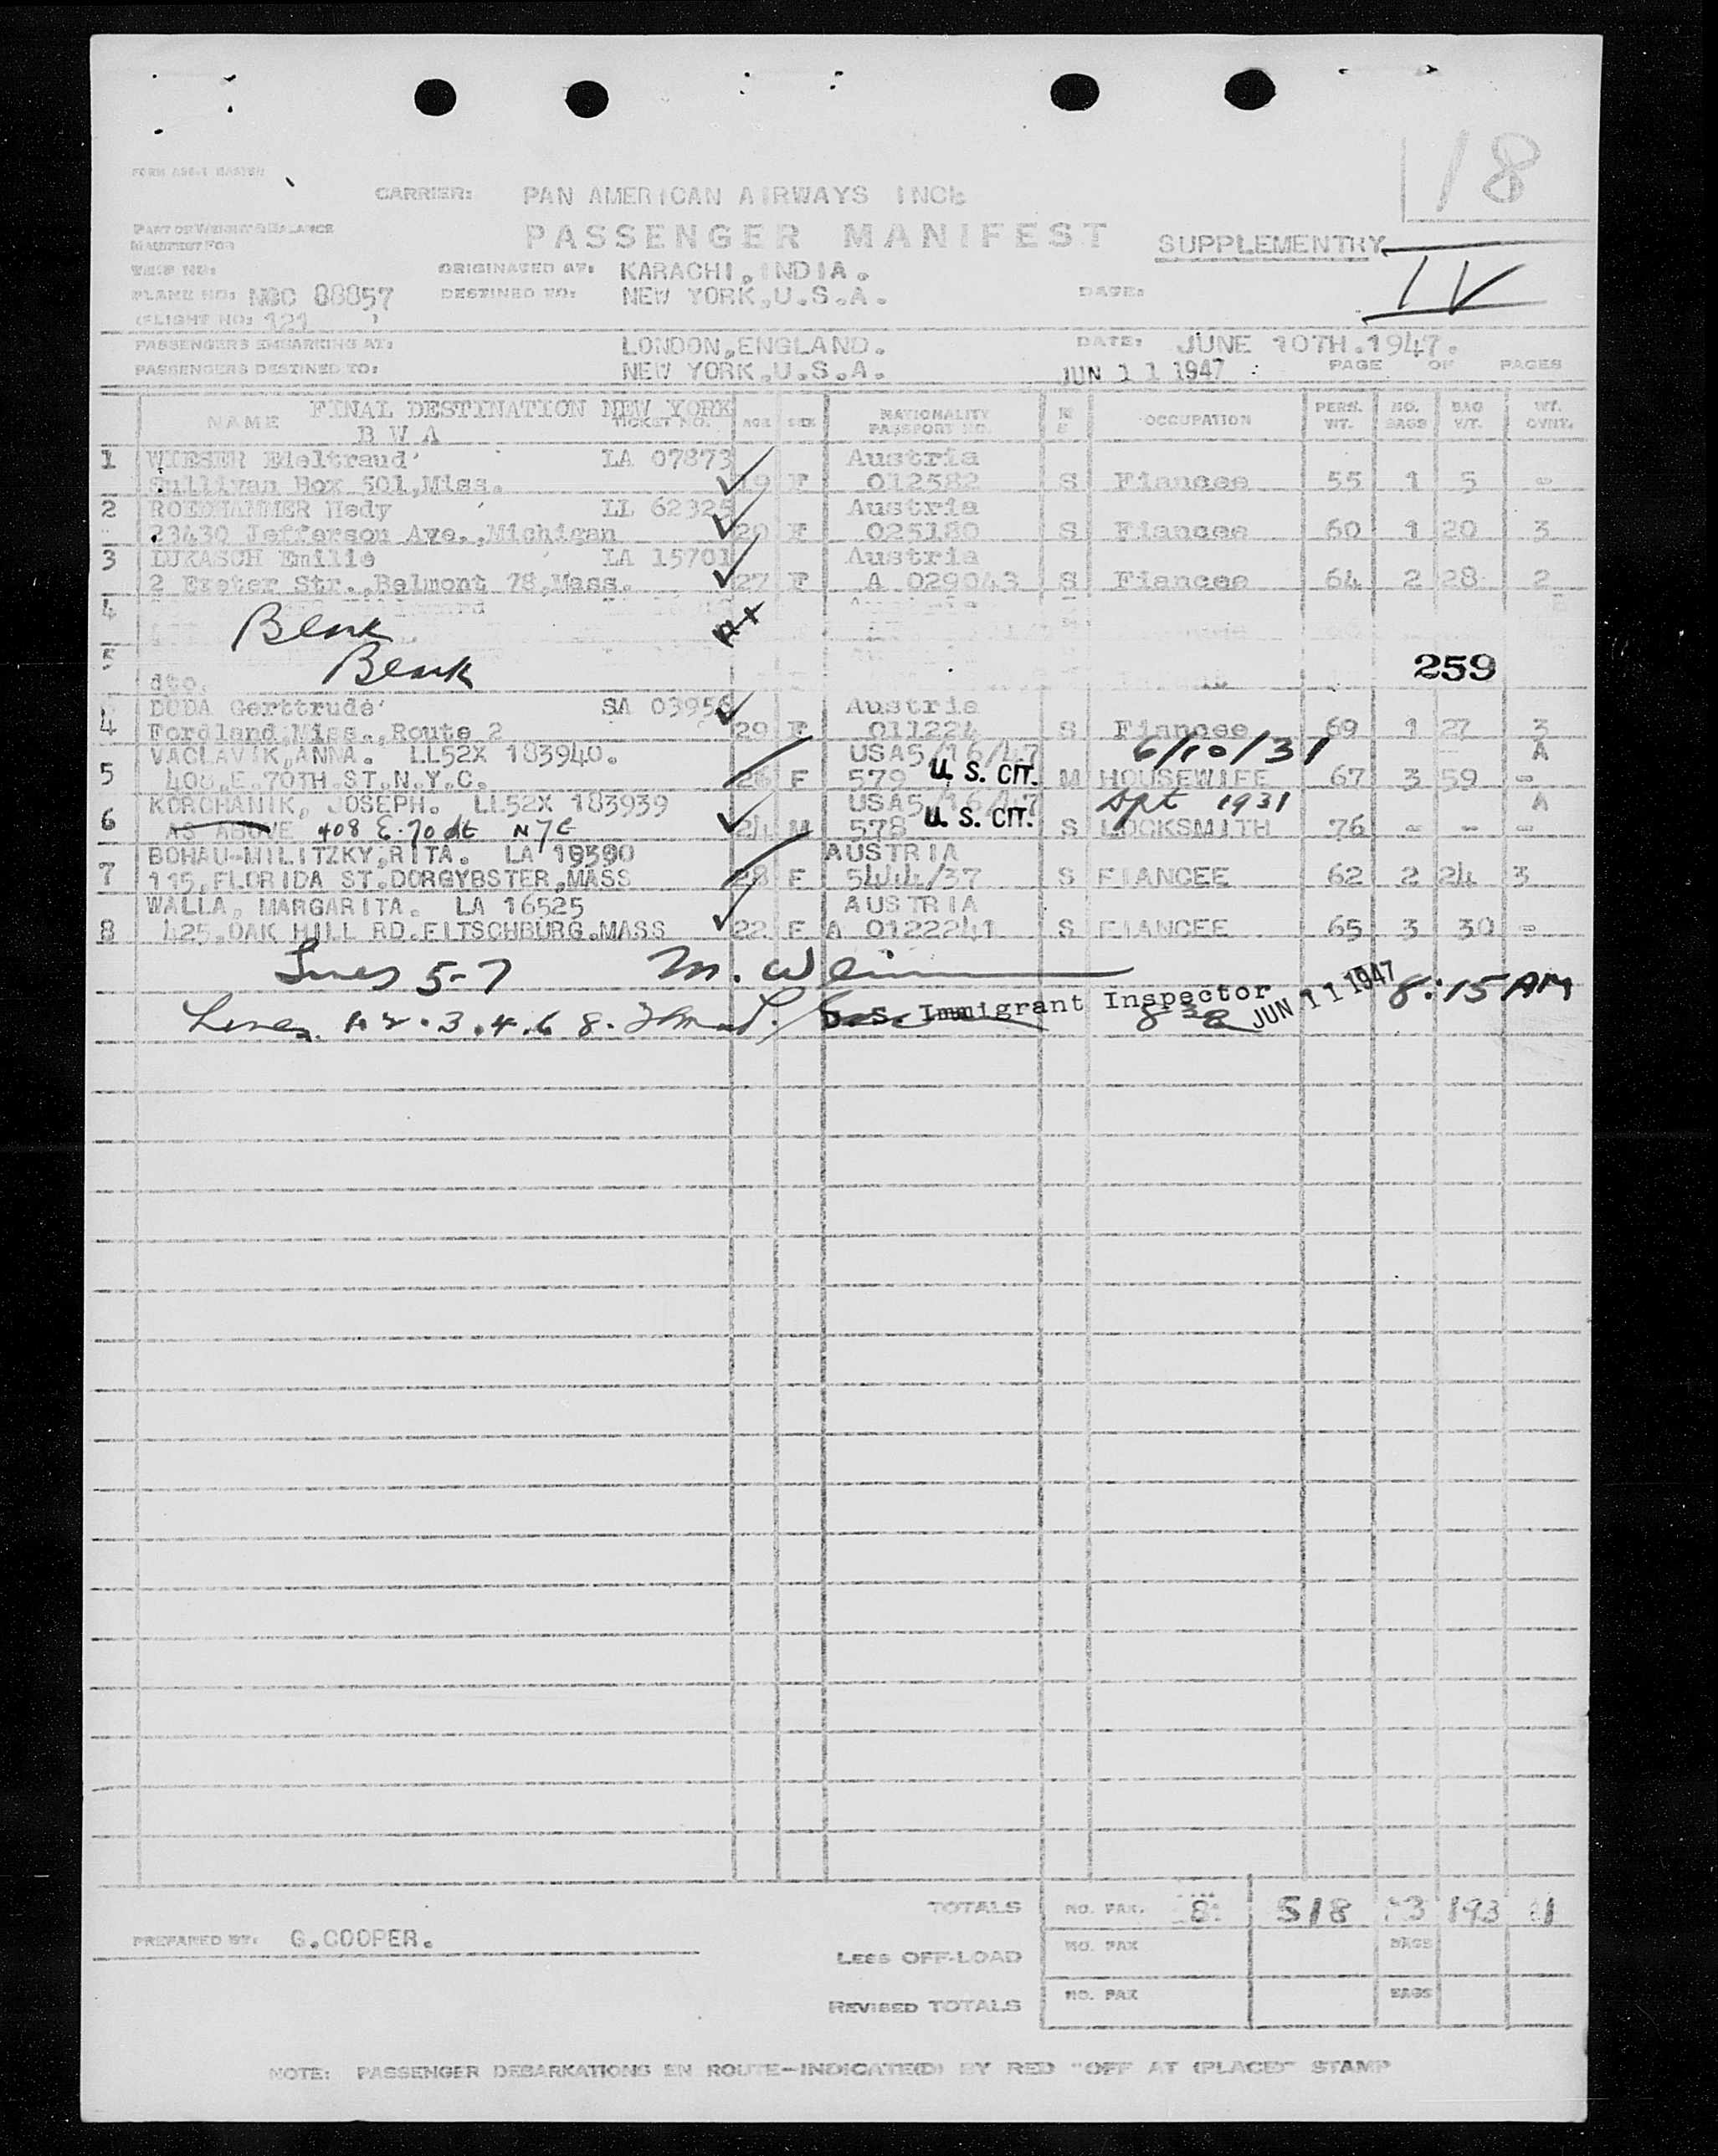 18
CARRIER: PAN AMERICAN AIRWAYS INC.
PART OF WEIGHT & BALANCE
MANIFEST FOR
PASSENGER MANIFEST
SUPPLEMENTRY
IV
TRIP NO:
ORIGINATED AT: KARACHI, INDIA.
PLANE NO: NGC 88857
DESTINED TO: NEW YORK, U.S.A.
DATE:
(FLIGHT NO: 121 )
PASSENGERS EMBARKING AT: LONDON, ENGLAND. DATE: JUNE 10TH.1947.
PASSENGERS DESTINED TO: NEW YORK, U.S.A. JUN 11 1947 PAGE OF PAGES
FINAL DESTINATION NEW YORK
NAME TICKET NO. AGE SEX NATIONALITY PASSPORT NO. OCCUPATION PERS. WT. NO. BAGS BAG WT. WT. OVWT.
B W A
1 WIESER Edeltraud LA 07873 Austria
Sullivan Box 501, Miss. 19 F 012582 S Fiancee 55 1 5 -
2 Hedy LL 62325 Austria
23430 Jefferson Ave., Michigan 20 F 025180 S Fiancee 60 1 20 3
3 LUKASCH Emilie LA 15701 Austria
2 Exeter Str., Belmont 78, Mass. 27 F A 029043 S Fiancee 64 2 28 2
4 Blank
5 Blank
dto.
259
DODA Gerttrude SA 03956 Austria
4 Fordland, Miss., Route 2 29 F 011224 S Fiancee 69 1 27 3
VACLAVIK, ANNA. LL52X 183940. USA5/16/47 6/10/31 A
5 408, E. 70TH. ST. N.Y.C. 26 F 579 U. S. CIT. M HOUSEWIFE 67 3 59 -
KORCHANIK, JOSEPH. LL52X 183939 USA5/16/47 Spt 1931 A
6 AS ABOVE 408 E. 70 st NYC 24 M 578 U. S. CIT. S LOCKSMITH 76 - - -
BOHAU-MILITZKY, RITA. LA 19390 AUSTRIA
7 115, FLORIDA ST. DORGYBSTER, MASS 28 F 5444/37 S FIANCEE 62 2 24 3
WALLA, MARGARITA. LA 16525 AUSTRIA
8 425, OAK HILL RD. FITSCHBURG. MASS 22 F A 0122241 S FIANCEE 65 3 30 -
Lines 5-7 M. JUN 11 1947 8:15 AM
Lines 1. 2. 3. 4. 6 8. U. S. Immigrant Inspector JUN 11 1947
TOTALS NO. PAX. 8 518 13 193 11
PREPARED BY: G. COOPER.
LESS OFF-LOAD NO. PAX BAGS
REVISED TOTALS NO. PAX BAGS
NOTE: PASSENGER DEBARKATIONS EN ROUTE—INDICATE(D) BY RED "OFF AT (PLACE)" STAMP